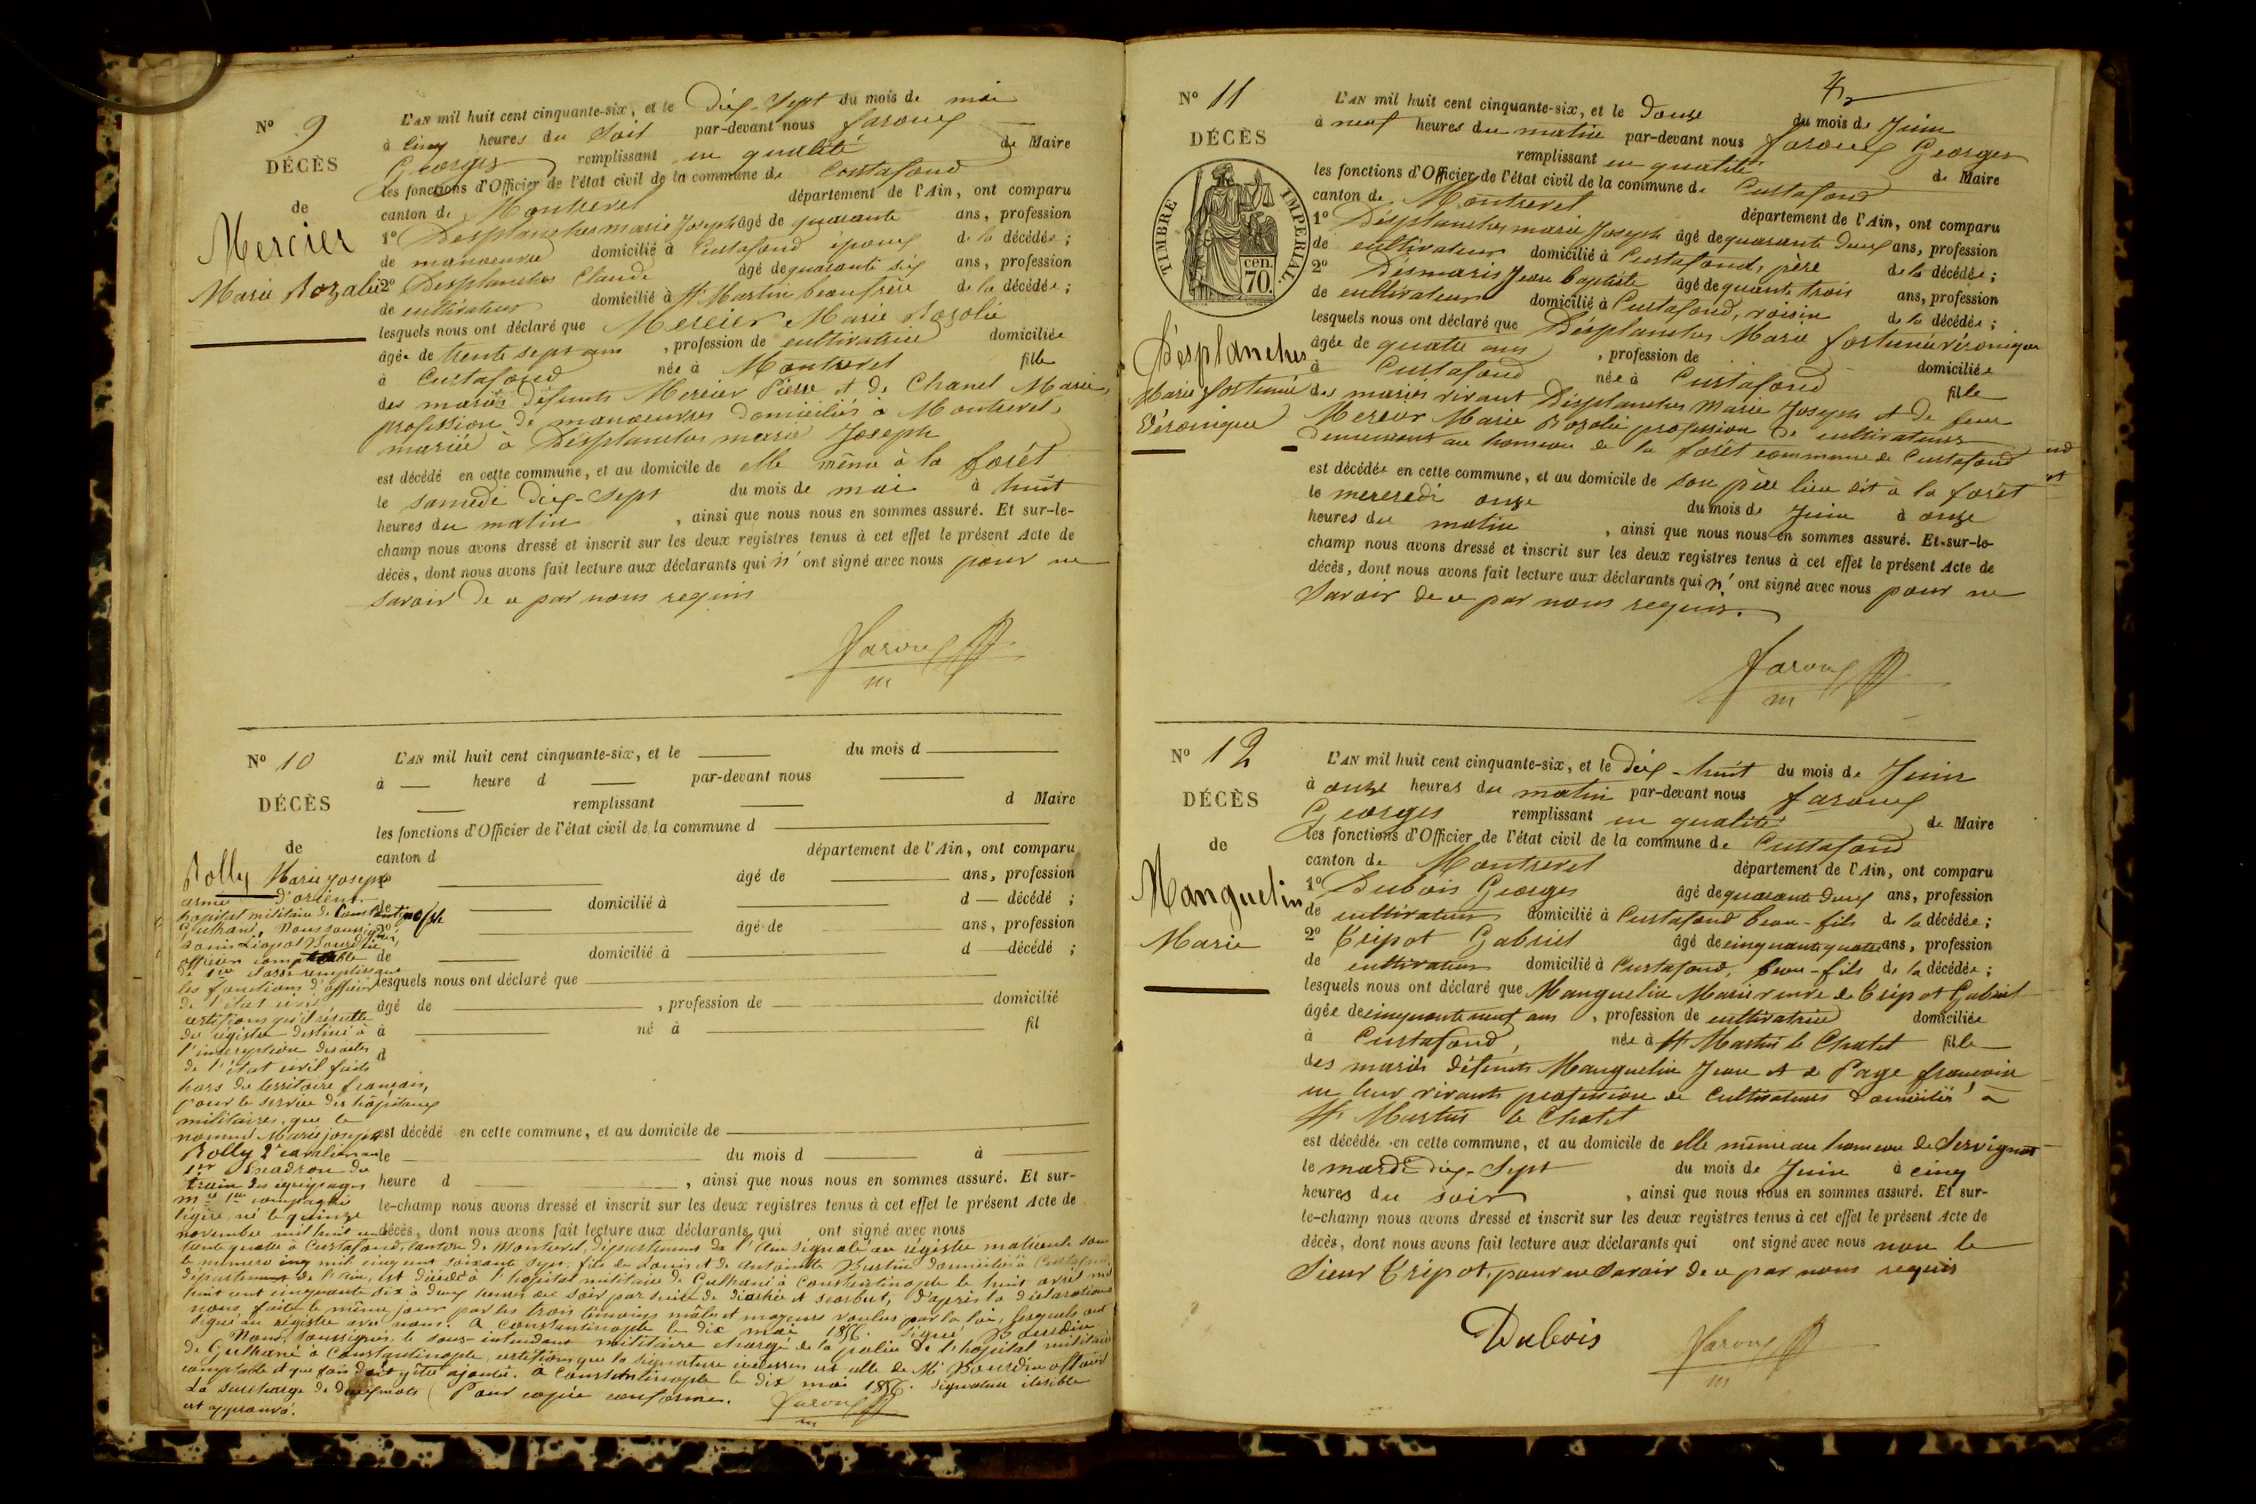 N° 9
DÉCÈS
de
Mercier
Marie Rozalie
L'AN mil huit cent cinquante-six, et le dix-sept du mois de mai
à cinq heures du soir par-devant nous Faroux
Georges remplissant en qualité de Maire
les fonctions d'Officier de l'état civil de la commune de Curtafond
canton de Montrevel département de l'Ain, ont comparu
1° Desplanches marie Joseph âgé de quarante ans, profession
de manoeuvre domicilié à Curtafond époux de la décédée ;
2° Desplanches Claude âgé de quarante six ans, profession
de cultivateur domicilié à St Martin beaufrère de la décédée ;
lesquels nous ont déclaré que Mercier Marie Rozalie
âgée de trente sept ans , profession de cultivatrice domiciliée
à Curtafond née à Montrevel fille
des mariés défunts Mercier Pierre et de Chanel Marie,
profession de manoeuvres domiciliés à Montrevel,
mariée à Desplanches marie Joseph
est décédé en cette commune, et au domicile de elle même à la forêt
le samedi dix-sept du mois de mai à huit
heures du matin , ainsi que nous nous en sommes assuré. Et sur-le-
champ nous avons dressé et inscrit sur les deux registres tenus à cet effet le présent Acte de
décès, dont nous avons fait lecture aux déclarants qui n'ont signé avec nous pour ne
savoir de ce par nous requis
Faroux
m
N° 10
DÉCÈS
de
Rolly Marie Joseph
armée d'orient.
hopital militaire de Constantinople
Gulhané, Nous soussigné,
Louis Léopol Bourdin,
officier comptable
de 1ère classe remplissant
les fonctions d'officier
de l'état civil
certifions qu'il résulte
du registre destiné à
l'inscription des actes
de l'état civil faits
hors du territoire français,
pour le service des hôpitaux
militaires, que le
nommé Marie joseph
Rolly 2e cavalier au
1er Escadron du
train des équipages
mre 1re compagnie
légère, né le quinze
novembre mil huit cent
trente quatre à Curtafond, canton de Montrevel, département de l'Ain signalé au registre matricule sous
le numéro cinq mil cinq cent soixante sept, fils de Louis et de Antoinette domicilié à Curtafond
département de l'Ain, est décédé à l'hopital militaire de Gulhané à Constantinople le huit avril mil
huit cent cinquante six à deux heures du soir par suite de diarhée et scorbut, d'après la déclaration
à nous faite le même jour par les trois témoins mâles et majeurs voulus par la loi, lesquels ont
signé au registre avec nous. à Constantinople le dix mai 1856. signé Bourdin
Nous, soussigné, le sous-intendant militaire chargé de la police de l'hopital militaire
de Gulhané à Constantinople, certifions que la signature ci-dessus est celle de Mr Bourdin officier
comptable et que foi doit y être ajoutée. à Constantinople le dix mai 1856. Signature ilisible
La surcharge de deux mots Pour copie conforme.
est approuvé.
Faroux
m
L'AN mil huit cent cinquante-six, et le du mois d
à heure d par-devant nous
remplissant d Maire
les fonctions d'Officier de l'état civil de la commune d
canton d département de l'Ain, ont comparu
âgé de ans, profession
de domicilié à d décédé ;
2° âgé de ans, profession
de domicilié à d décédé ;
lesquels nous ont déclaré que
âgé de , profession de domicilié
à né à fil
d
est décédé en cette commune, et au domicile de
le du mois d à
heure d , ainsi que nous nous en sommes assuré. Et sur-
le-champ nous avons dressé et inscrit sur les deux registres tenus à cet effet le présent Acte de
décès, dont nous avons fait lecture aux déclarants qui ont signé avec nous
N° 11
DÉCÈS
TIMBRE IMPERIAL.
70. cen.
Désplanches
Marie fortunée
Véronique
L'AN mil huit cent cinquante-six, et le douze du mois de Juin
à neuf heures du matin par-devant nous Faroux Georges
remplissant en qualité de Maire
les fonctions d'Officier de l'état civil de la commune de Curtafond
canton de Montrevel département de l'Ain, ont comparu
1° Désplanches marie Joseph âgé de quarante deux ans, profession
de cultivateur domicilié à Curtafond, père de la décédée ;
2° Désmaris Jean baptiste âgé de quarente trois ans, profession
de cultivateur domicilié à Curtafond, voisin de la décédée ;
lesquels nous ont déclaré que Désplanches Marie fortunée véronique
âgée de quatre ans , profession de domiciliée
à Curtafond née à Curtafond fille
des mariés vivant Désplanches Marie Joseph et de feue
Mercier Marie Rozalie profession de cultivateurs
demeurant au hameau de la forêt commune de Curtafond
est décédée en cette commune, et au domicile de son père lieu dit à la forêt
le mercredi onze du mois de Juin à onze
heures du matin , ainsi que nous nous en sommes assuré. Et sur-le-
champ nous avons dressé et inscrit sur les deux registres tenus à cet effet le présent Acte de
décès, dont nous avons fait lecture aux déclarants qui n'ont signé avec nous pour ne
savoir de ce par nous requis.
Faroux
m
N° 12
DÉCÈS
de
Manguelin
Marie
L'AN mil huit cent cinquante-six, et le dix-huit du mois de Juin
à onze heures du matin par-devant nous Faroux
Georges remplissant en qualité de Maire
les fonctions d'Officier de l'état civil de la commune de Curtafond
canton de Montrevel département de l'Ain, ont comparu
1° Dubois Georges âgé de quarante deux ans, profession
de cultivateur domicilié à Curtafond beau-fils de la décédée ;
2° Tripot Gabriel âgé de cinquante quatre ans, profession
de cultivateur domicilié à Curtafond, beau-fils de la décédée ;
lesquels nous ont déclaré que Manguelin Marie veuve de Tripot Gabriel
âgée de cinquante neuf ans , profession de cultivatrice domiciliée
à Curtafond, née à St Martin le Chatel fille
des mariés défunts Manguelin Jean et de Page francoise
en leur vivants profession de cultivateurs domiciliés à
St Martin le Chatel
est décédée en cette commune, et au domicile de elle même au hameau de Servignat
le mardi dix-sept du mois de Juin à cinq
heures du soir , ainsi que nous nous en sommes assuré. Et sur-
le-champ nous avons dressé et inscrit sur les deux registres tenus à cet effet le présent Acte de
décès, dont nous avons fait lecture aux déclarants qui ont signé avec nous non le
Sieur Tripot, pour ne savoir de ce par nous requis
Dubois
Faroux
m